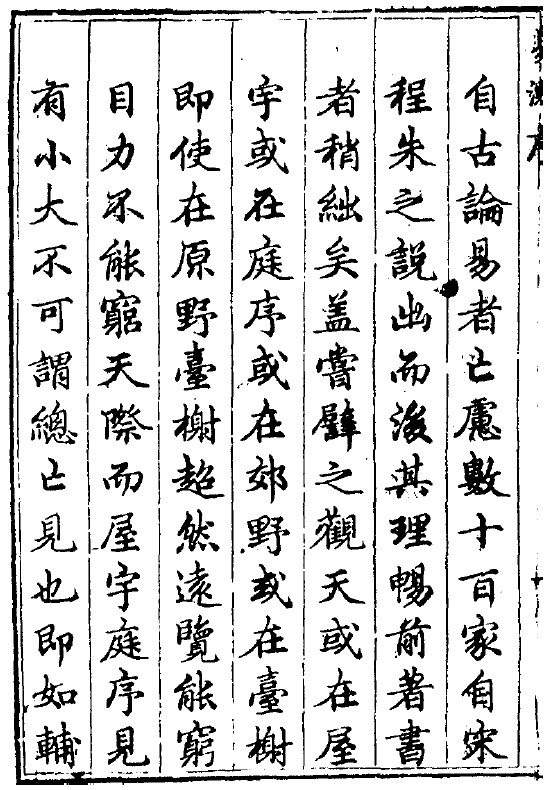 自古論易者亡慮數十百家自宋
程朱之說出而後其理暢前著書
者稍絀矣盖嘗譬之觀天或在屋
宇或在庭序或在郊野或在臺榭
即使在原野臺榭超然遠覽能窮
目力不能窮天際而屋宇庭序見
有小大不可謂總亡見也即如輔